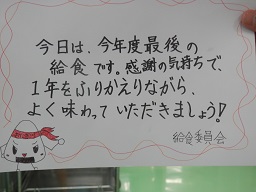 今日は、今年度最後の
給食です。感謝の気持ちで、
1年をふりかえりながら、
よく味わっていただきましょう!
給食委員会